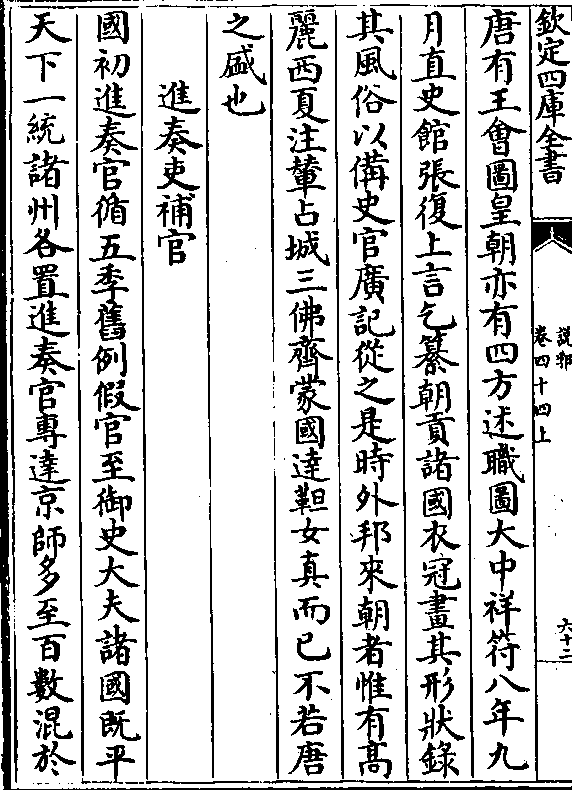 欽定四庫全書
說郛
卷四十四上
六十二
唐有王會圖皇朝亦有四方述職圖大中祥符八年九
月直史館張復上言乞纂朝貢諸國衣冠畫其形狀錄
其風俗以備史官廣記從之是時外邦來朝者惟有髙
麗西夏注輦占城三佛齊蒙國達靼女真而已不若唐
之盛也
進奏吏補官
國初進奏官循五季舊例假官至御史大夫諸國既平
天下一統諸州各置進奏官專達京師多至百數混於